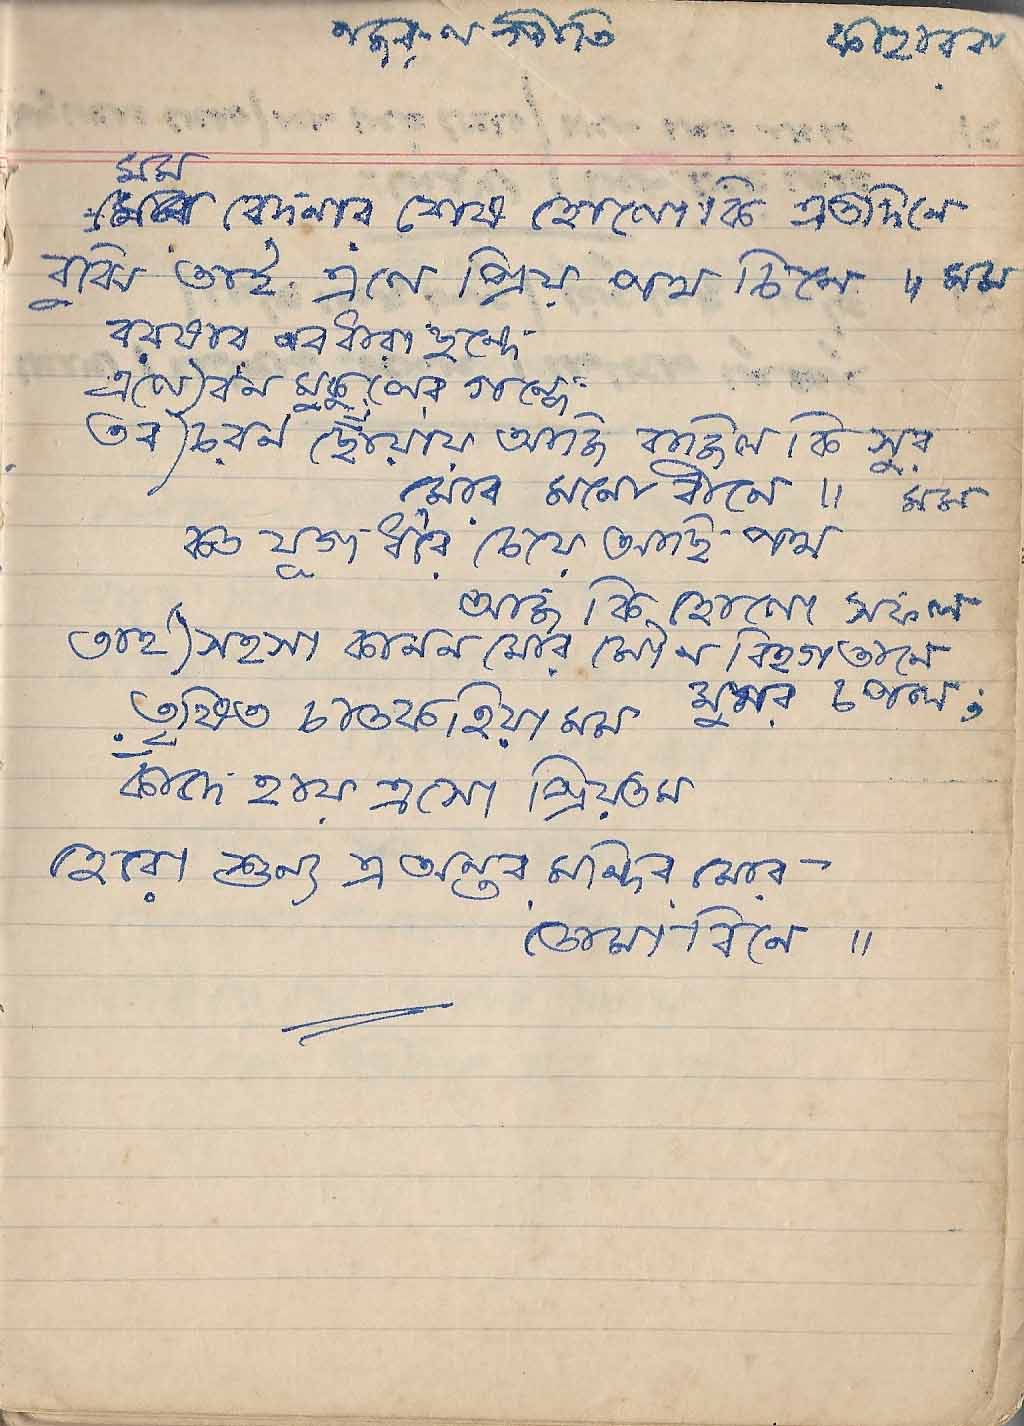 নজরুল গীতি কাহারবা
মম
বেদনার শেষ হোলো কি এতদিনে
বুঝি তাই এলে প্রিয় পথ চিনে ॥ মম
বরষার নবধারা ছন্দে
এলে) বন মুকুলের গন্ধে
তব) চরণ ছোঁয়ায় আজি বাজিল কি সুর
মোর মনো বীনে ॥ মম
কত যূগ ধরি চেয়ে আছি পথ
আজ কি হোলো সফল
তাই) সহসা কানন মোর মৌন বিহগতানে
মুখর চপল;
তৃষিত চাতক হিয়া মম
কাঁদে হায় এসো প্রিয়তম
হেরো শুন্য এ অন্তর মন্দির মোর
তোমা বিনে ॥